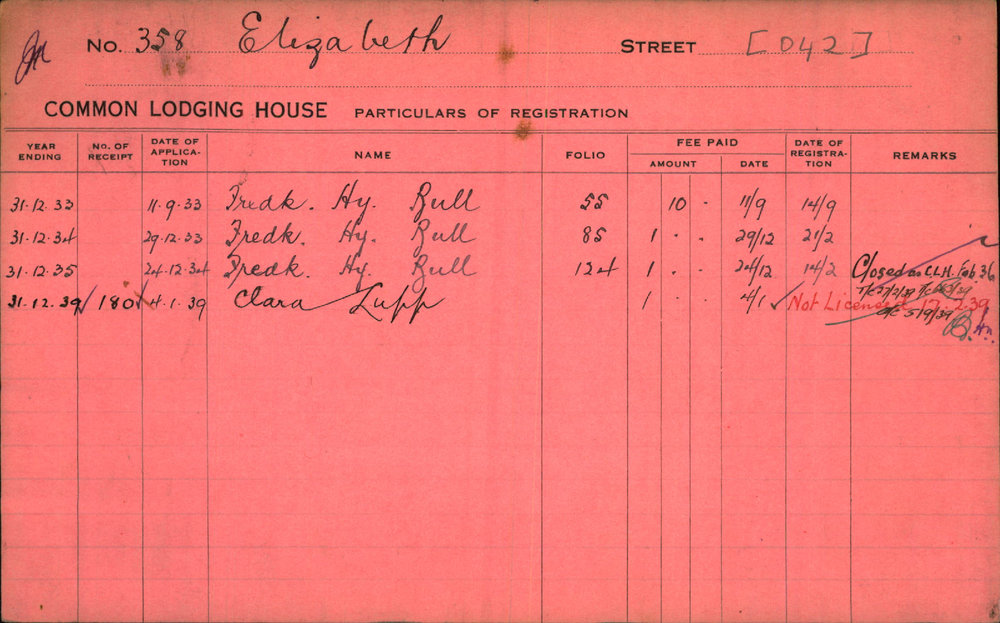 No. 358 Elizabeth STREET [D42]
COMMON LODGING HOUSE PARTICULARS OF REGISTRATION
YEAR ENDING NO. OF RECEIPT DATE OF APPLICA-TION NAME FOLIO FEE PAID AMOUNT DATE DATE OF REGISTRA-TION REMARKS
31.12.33 11.9.33 Fredk. Hy. Bull 55 10 - 11/9 14/9
31.12.34 29.12.33 Fredk. Hy. Bull 85 1 . . 29/12 21/2
31.12.35 24.12.34 Fredk. Hy. Bull 124 1 . . 24/12 14/2 Closed as C.L.H. Feb 36
31.12.39 180 4.1.39 Clara Lupp 1 . . 4/1 Not Licensed 17.2.39
5/9/39